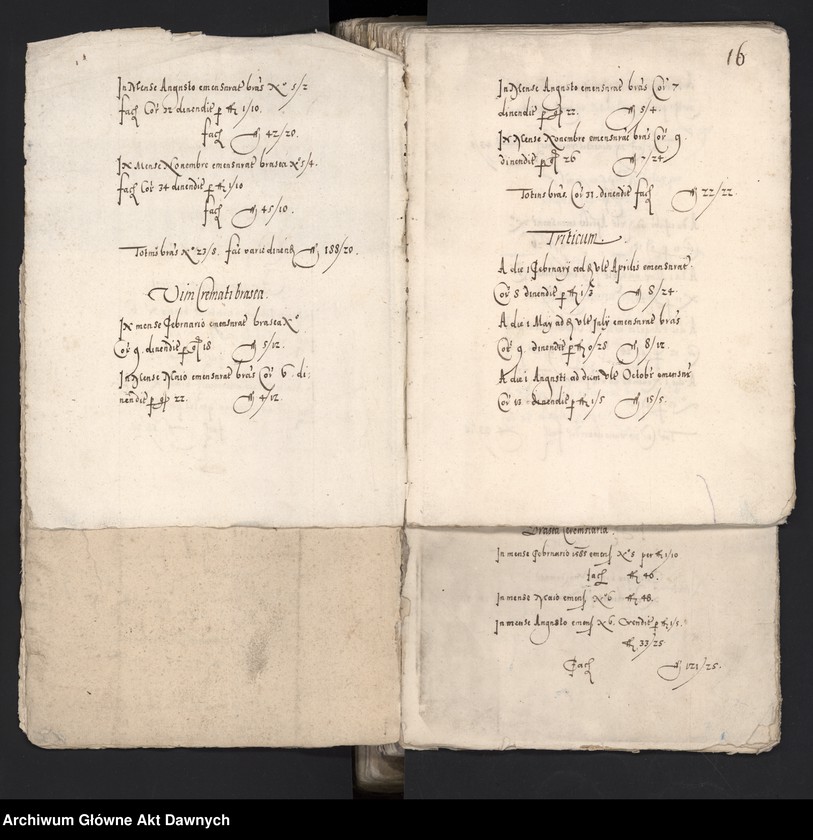 In Mense Augusto emensurat bras Nº 5/2
fach Cor 32 divendit p fl 1/10.
fach fl 42/20.
In Mense Novembre emensurat brasea Nº 5/4.
fach Cor 34 divendit p fl 1/10
fach fl 45/10.
Totius bras Nº 23/8. fac varie divend fl 188/20.
Vini Cremati brasea.
In mense Februario emensurat brasea Nº
Cor 9. divendit p 18 fl 5/12.
In Mense Maio emensurat bras Cor 6. di:
vendit p 22. fl 4/12.
16
In Mense Augusto emensurat bras Cor 7
divendit p 22. fl 5/4.
In Mense Novembre emensurat bras Cor 9.
divendit p 26 fl 7/24.
Totius bras. Cor 31. divendit fach fl 22/22.
Triticum.
A die 1 February ad Ult Aprilis emensurat
Cor 8 divendit p fl 1/3 fl 8/24.
A die 1 May ad Ult July emensurat bras
Cor 9. divendit p fl 0/28 fl 8/12.
A die 1 Augusti ad diem Ult Octobr emensur
Cor 13 divendit p fl 1/5 fl 15/5.
Brasea
In mense Februario 1585 emens Nº 8 per fl 1/10
fach fl 46.
In mense Maio emens Nº 6 fl 48.
In mense Augusto emens Nº 6. Vendit p fl 1/5.
fl 33/25
Fach fl 121/25.
Archiwum Główne Akt Dawnych